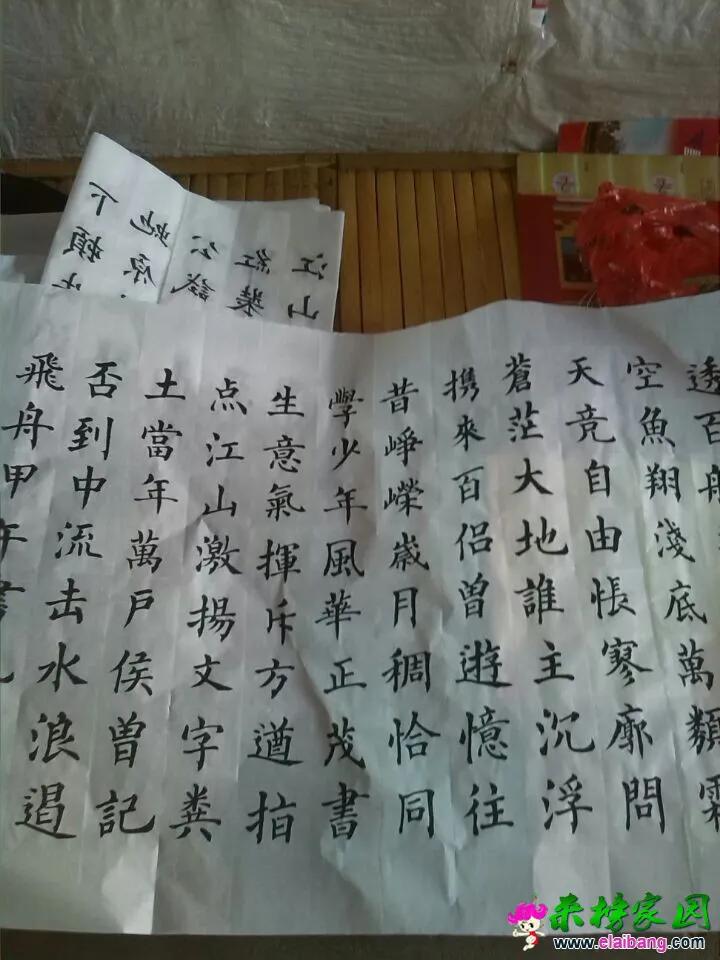 江山
紅裝
原
下頓
透百舸
空魚翔淺底萬類霜
天竞自由悵寥廓問
蒼茫大地誰主沉浮
携來百侣曾遊憶往
昔崢嶸歲月稠恰同
學少年風華正茂書
生意氣揮斥方遒指
点江山激揚文字粪
土當年萬戶侯曾記
否到中流击水浪遏
飛舟甲午
来榜家园
www.elaibang.com